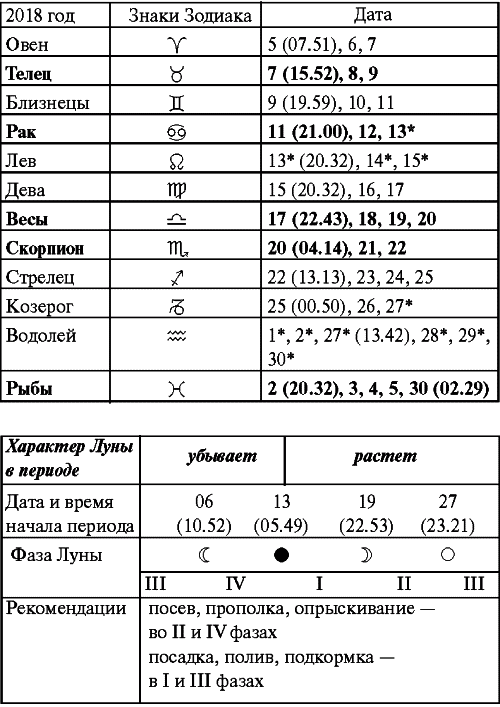 2018 год Знаки Зодиака Дата
Овен ♈ 5 (07.51), 6, 7
Телец ♉ 7 (15.52), 8, 9
Близнецы ♊ 9 (19.59), 10, 11
Рак ♋ 11 (21.00), 12, 13*
Лев ♌ 13* (20.32), 14*, 15*
Дева ♍ 15 (20.32), 16, 17
Весы ♎ 17 (22.43), 18, 19, 20
Скорпион ♏ 20 (04.14), 21, 22
Стрелец ♐ 22 (13.13), 23, 24, 25
Козерог ♑ 25 (00.50), 26, 27*
Водолей ♒ 1*, 2*, 27* (13.42), 28*, 29*,
30*
Рыбы ♓ 2 (20.32), 3, 4, 5, 30 (02.29)
Характер Луны
в периоде убывает растет
Дата и время 06 13 19 27
начала периода (10.52) (05.49) (22.53) (23.21)
Фаза Луны ☾ ● ☽ ○
III IV I II III
Рекомендации посев, прополка, опрыскивание —
во II и IV фазах
посадка, полив, подкормка —
в I и III фазах